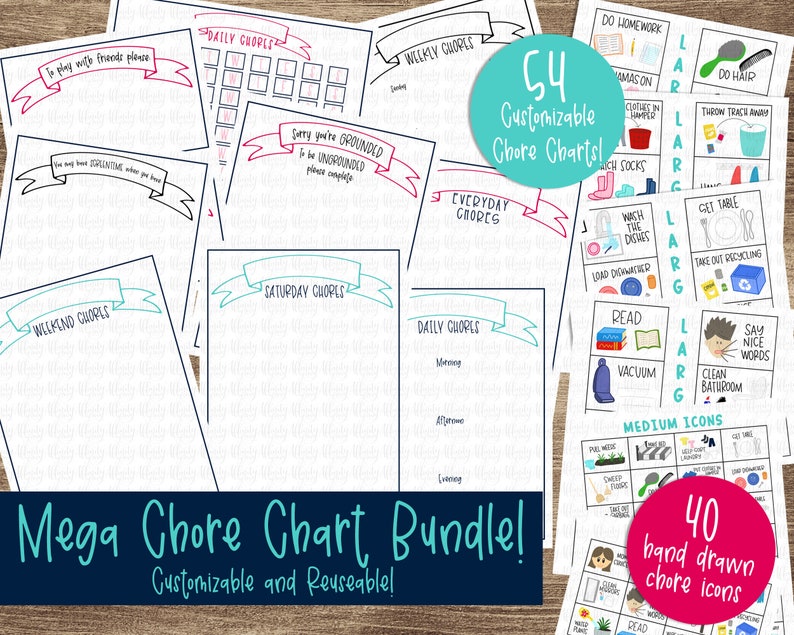 To play with friends please:
DAILY CHORES
WEEKLY CHORES
Sunday
54
Customizable
Chore Charts!
You may have SCREENTIME when you have:
Sorry you're GROUNDED
To be UNGROUNDED
please complete:
EVERYDAY
CHORES
WEEKEND CHORES
SATURDAY CHORES
DAILY CHORES
Morning
Afternoon
Evening
DO HOMEWORK
DO HAIR
THROW TRASH AWAY
CLOTHES IN
HAMPER
SOCKS
LARG
LARG
LARG
LARG
WASH
THE
DISHES
GET TABLE
LOAD DISHWASHER
TAKE OUT RECYCLING
READ
SAY
NICE
WORDS
VACUUM
CLEAN
BATHROOM
MEDIUM ICONS
PULL WEEDS
MAKE BED
HELP SORT
LAUNDRY
GET TABLE
SWEEP
FLOORS
PUT CLOTHES IN
LOAD DISHWASHER
TAKE OUT
CLEAN
MIRRORS
WATER
PLANTS
READ
40
hand drawn
chore icons
Mega Chore Chart Bundle!
Customizable and Reuseable!